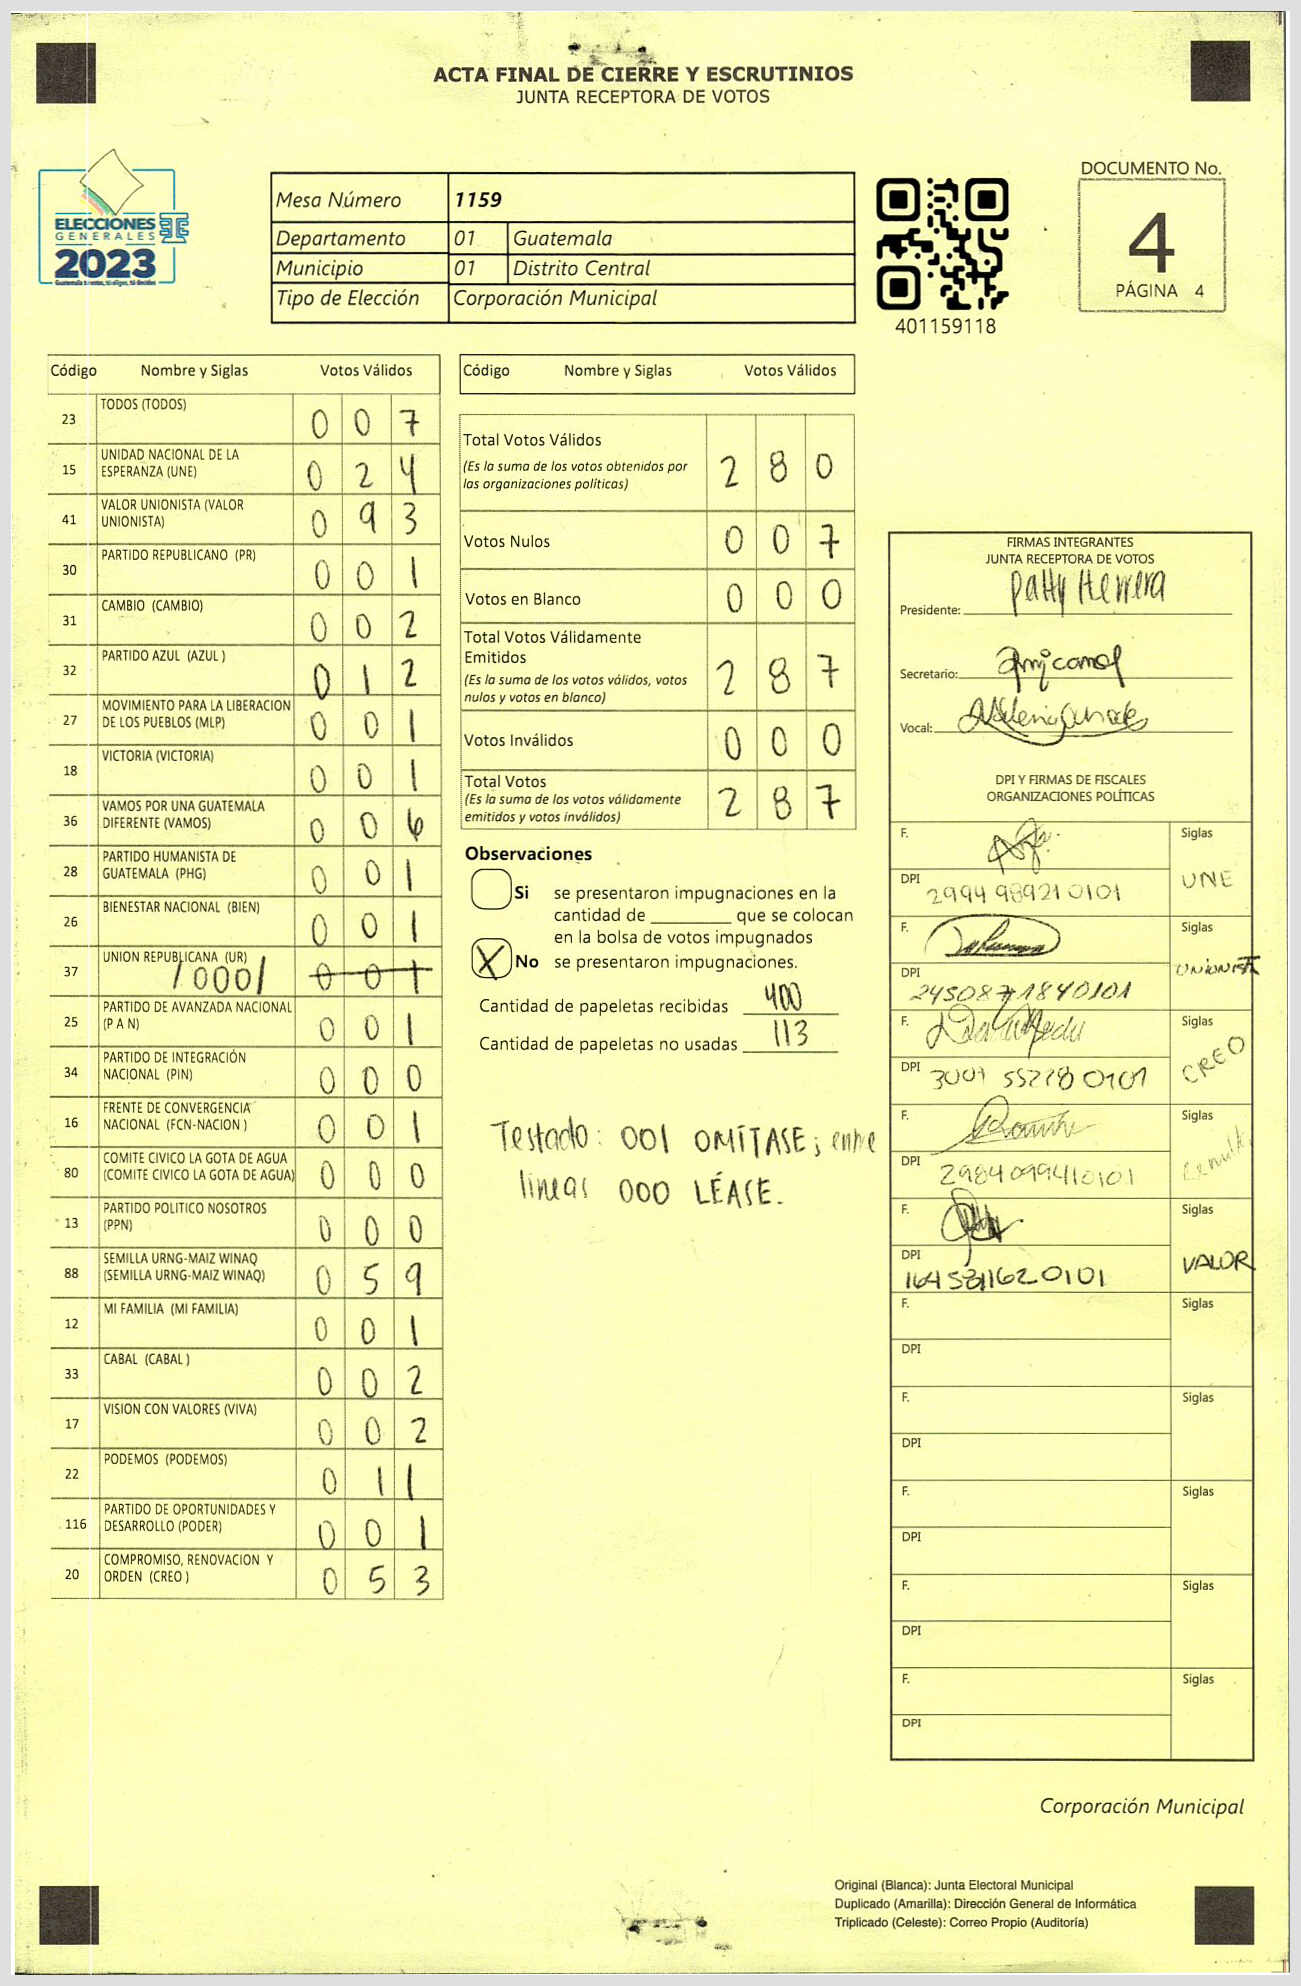 ACTA FINAL DE CIERRE Y ESCRUTINIOS
JUNTA RECEPTORA DE VOTOS
ELECCIONES
GENERALES
2023
Mesa Número 1159
Departamento 01 Guatemala
Municipio 01 Distrito Central
Tipo de Elección Corporación Municipal
401159118
DOCUMENTO No.
4
PÁGINA 4
Código Nombre y Siglas Votos Válidos
23 TODOS (TODOS) 0 0 7
15 UNIDAD NACIONAL DE LA ESPERANZA (UNE) 0 2 4
41 VALOR UNIONISTA (VALOR UNIONISTA) 0 9 3
30 PARTIDO REPUBLICANO (PR) 0 0 1
31 CAMBIO (CAMBIO) 0 0 2
32 PARTIDO AZUL (AZUL ) 0 1 2
27 MOVIMIENTO PARA LA LIBERACION DE LOS PUEBLOS (MLP) 0 0 1
18 VICTORIA (VICTORIA) 0 0 1
36 VAMOS POR UNA GUATEMALA DIFERENTE (VAMOS) 0 0 6
28 PARTIDO HUMANISTA DE GUATEMALA (PHG) 0 0 1
26 BIENESTAR NACIONAL (BIEN) 0 0 1
37 UNION REPUBLICANA (UR) /000/ 0 0 1
25 PARTIDO DE AVANZADA NACIONAL (P A N) 0 0 1
34 PARTIDO DE INTEGRACIÓN NACIONAL (PIN) 0 0 0
16 FRENTE DE CONVERGENCIA NACIONAL (FCN-NACION ) 0 0 1
80 COMITE CIVICO LA GOTA DE AGUA (COMITE CIVICO LA GOTA DE AGUA) 0 0 0
13 PARTIDO POLITICO NOSOTROS (PPN) 0 0 0
88 SEMILLA URNG-MAIZ WINAQ (SEMILLA URNG-MAIZ WINAQ) 0 5 9
12 MI FAMILIA (MI FAMILIA) 0 0 1
33 CABAL (CABAL ) 0 0 2
17 VISION CON VALORES (VIVA) 0 0 2
22 PODEMOS (PODEMOS) 0 1 1
116 PARTIDO DE OPORTUNIDADES Y DESARROLLO (PODER) 0 0 1
20 COMPROMISO, RENOVACION Y ORDEN (CREO ) 0 5 3
Código Nombre y Siglas Votos Válidos
Total Votos Válidos 2 8 0
(Es la suma de los votos obtenidos por
las organizaciones políticas)
Votos Nulos 0 0 7
Votos en Blanco 0 0 0
Total Votos Válidamente
Emitidos 2 8 7
(Es la suma de los votos válidos, votos
nulos y votos en blanco)
Votos Inválidos 0 0 0
Total Votos 2 8 7
(Es la suma de los votos válidamente
emitidos y votos inválidos)
Observaciones
Si se presentaron impugnaciones en la
cantidad de ________ que se colocan
en la bolsa de votos impugnados
X No se presentaron impugnaciones.
Cantidad de papeletas recibidas 400
Cantidad de papeletas no usadas 113
Testado: 001 OMÍTASE; entre
lineas 000 LÉASE.
FIRMAS INTEGRANTES
JUNTA RECEPTORA DE VOTOS
Presidente: Patty Herrera
Secretario:
Vocal:
DPI Y FIRMAS DE FISCALES
ORGANIZACIONES POLÍTICAS
F. Siglas
DPI 2994 98921 0101 UNE
F. Siglas
DPI 2450871840101 UNIONISTA
F. Siglas
DPI 3001 55278 0101 CREO
F. Siglas
DPI 2984099410101
F. Siglas
DPI 1645811620101 VALOR
F. Siglas
DPI
F. Siglas
DPI
F. Siglas
DPI
F. Siglas
DPI
F. Siglas
DPI
Corporación Municipal
Original (Blanca): Junta Electoral Municipal
Duplicado (Amarilla): Dirección General de Informática
Triplicado (Celeste): Correo Propio (Auditoría)